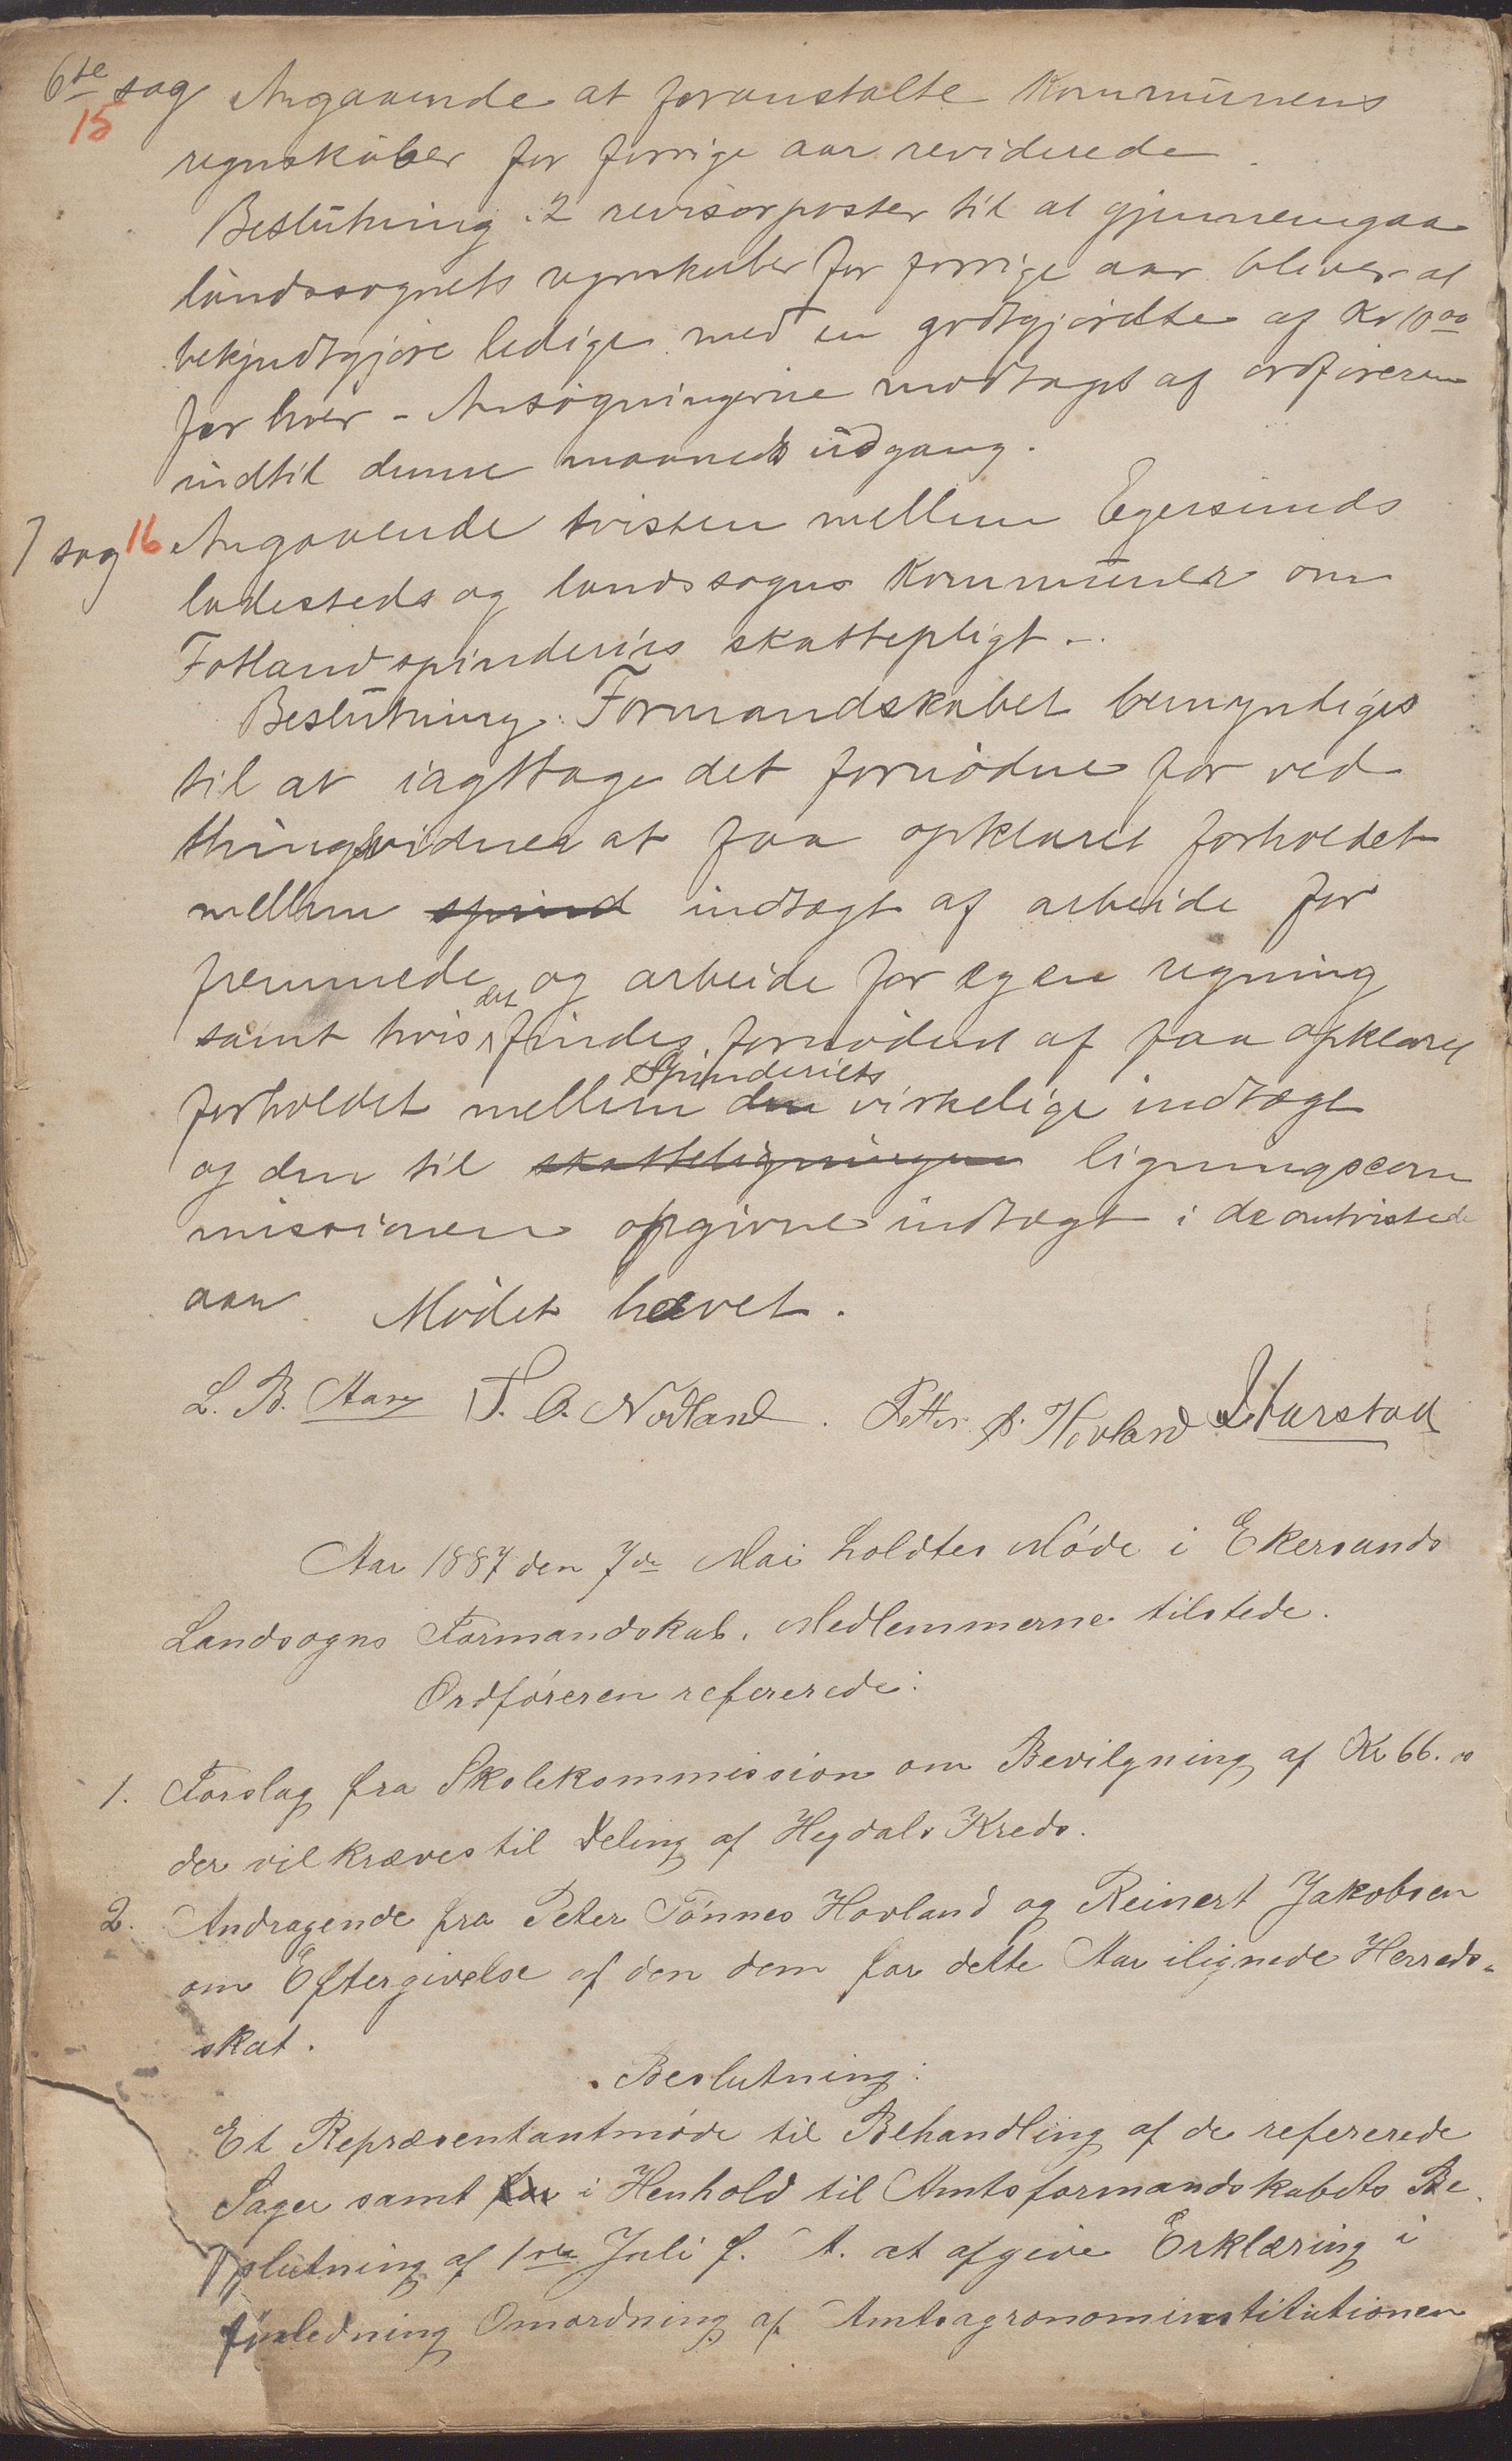 6te sag Angaaende at foranstalte Kommunens
15
regnskaber for forrige aar reviderede.
Beslutning. 2 revisorposter til at gjennemgaa
landssognets regnskaber for forrige aar bliver at
bekjendtgjøre ledige med en godtgjørelse af Kr 1000
for hver - Ansøgningerne modtaget af ordføreren
indtil denne maaneds udgang.
7 sag 16 Angaaende tvisten mellem Egersunds
ladesteds og landssogns Kommuner om
Fotlandspinderiis skattepligt -.
Beslutning: Formandskabet bemyndiges
til at iagttage det fornødne for ved
thingsvidner at faa opklaret forholdet
mellem spind indtægt af arbeide for
fremmede og arbeide for egen regning
samt hvis det findes fornødent af faa opklaret
forholdet mellem den Spinderiets virkelige indtægt
og den til skatteligningen ligningscom
missionen opgivne indtægt i de omtvistede
aar Mødet hævet.
L. B. Aase T. O. Nodland. Petter S. Hovland Starstad
Aar 1887 den 7de Mai holdtes Møde i Ekersunds
Landsogns Formandskab. Medlemmerne tilstede.
Ordføreren refererede:
1. Forslag fra Skolekommission om Bevilgning af Kr 66.00
der vil kræves til Deling af Hegdals Kreds.
2. Andragende fra Peter Tønnes Hovland og Reinert Jakobsen
om Eftergivelse af den dem for dette Aar ilignede Herreds-
skat.
Beslutning:
Et Repræsentantmøde til Behandling af de refererede
Sager samt for i Henhold til Amtsformandskabets Be
slutning af 1ste Juli f. A. at afgive Erklæring i
Anledning Omordning af Amtsagronominstitutionen